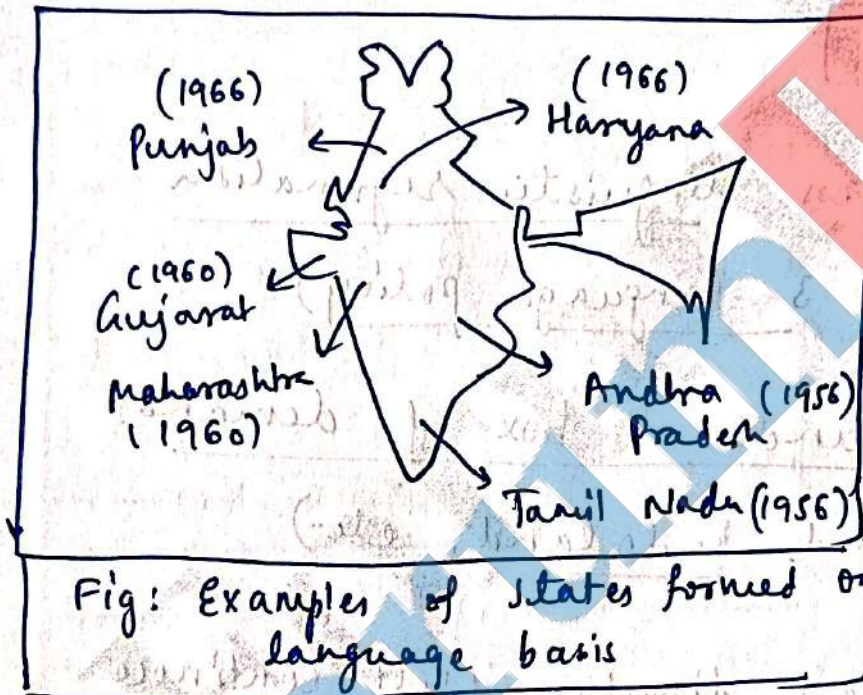 (1966)
Punjab
(1966)
Haryana
(1960)
Gujarat
Maharashtra
(1960)
Andhra (1956)
Pradesh
Tamil Nadu (1956)
Fig: Examples of states formed on
language basis